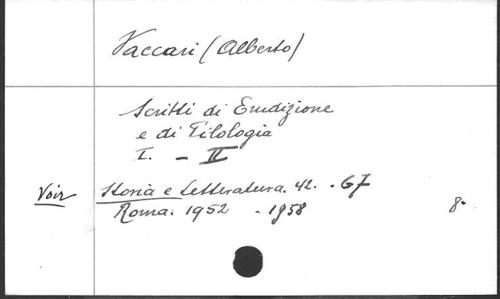 Vaccari (Alberto)
Scritti di Erudizione
e di Filologia
I. - II
Voir Storia e Letteratura. 42. - 67
Roma. 1952 - 1958 8°